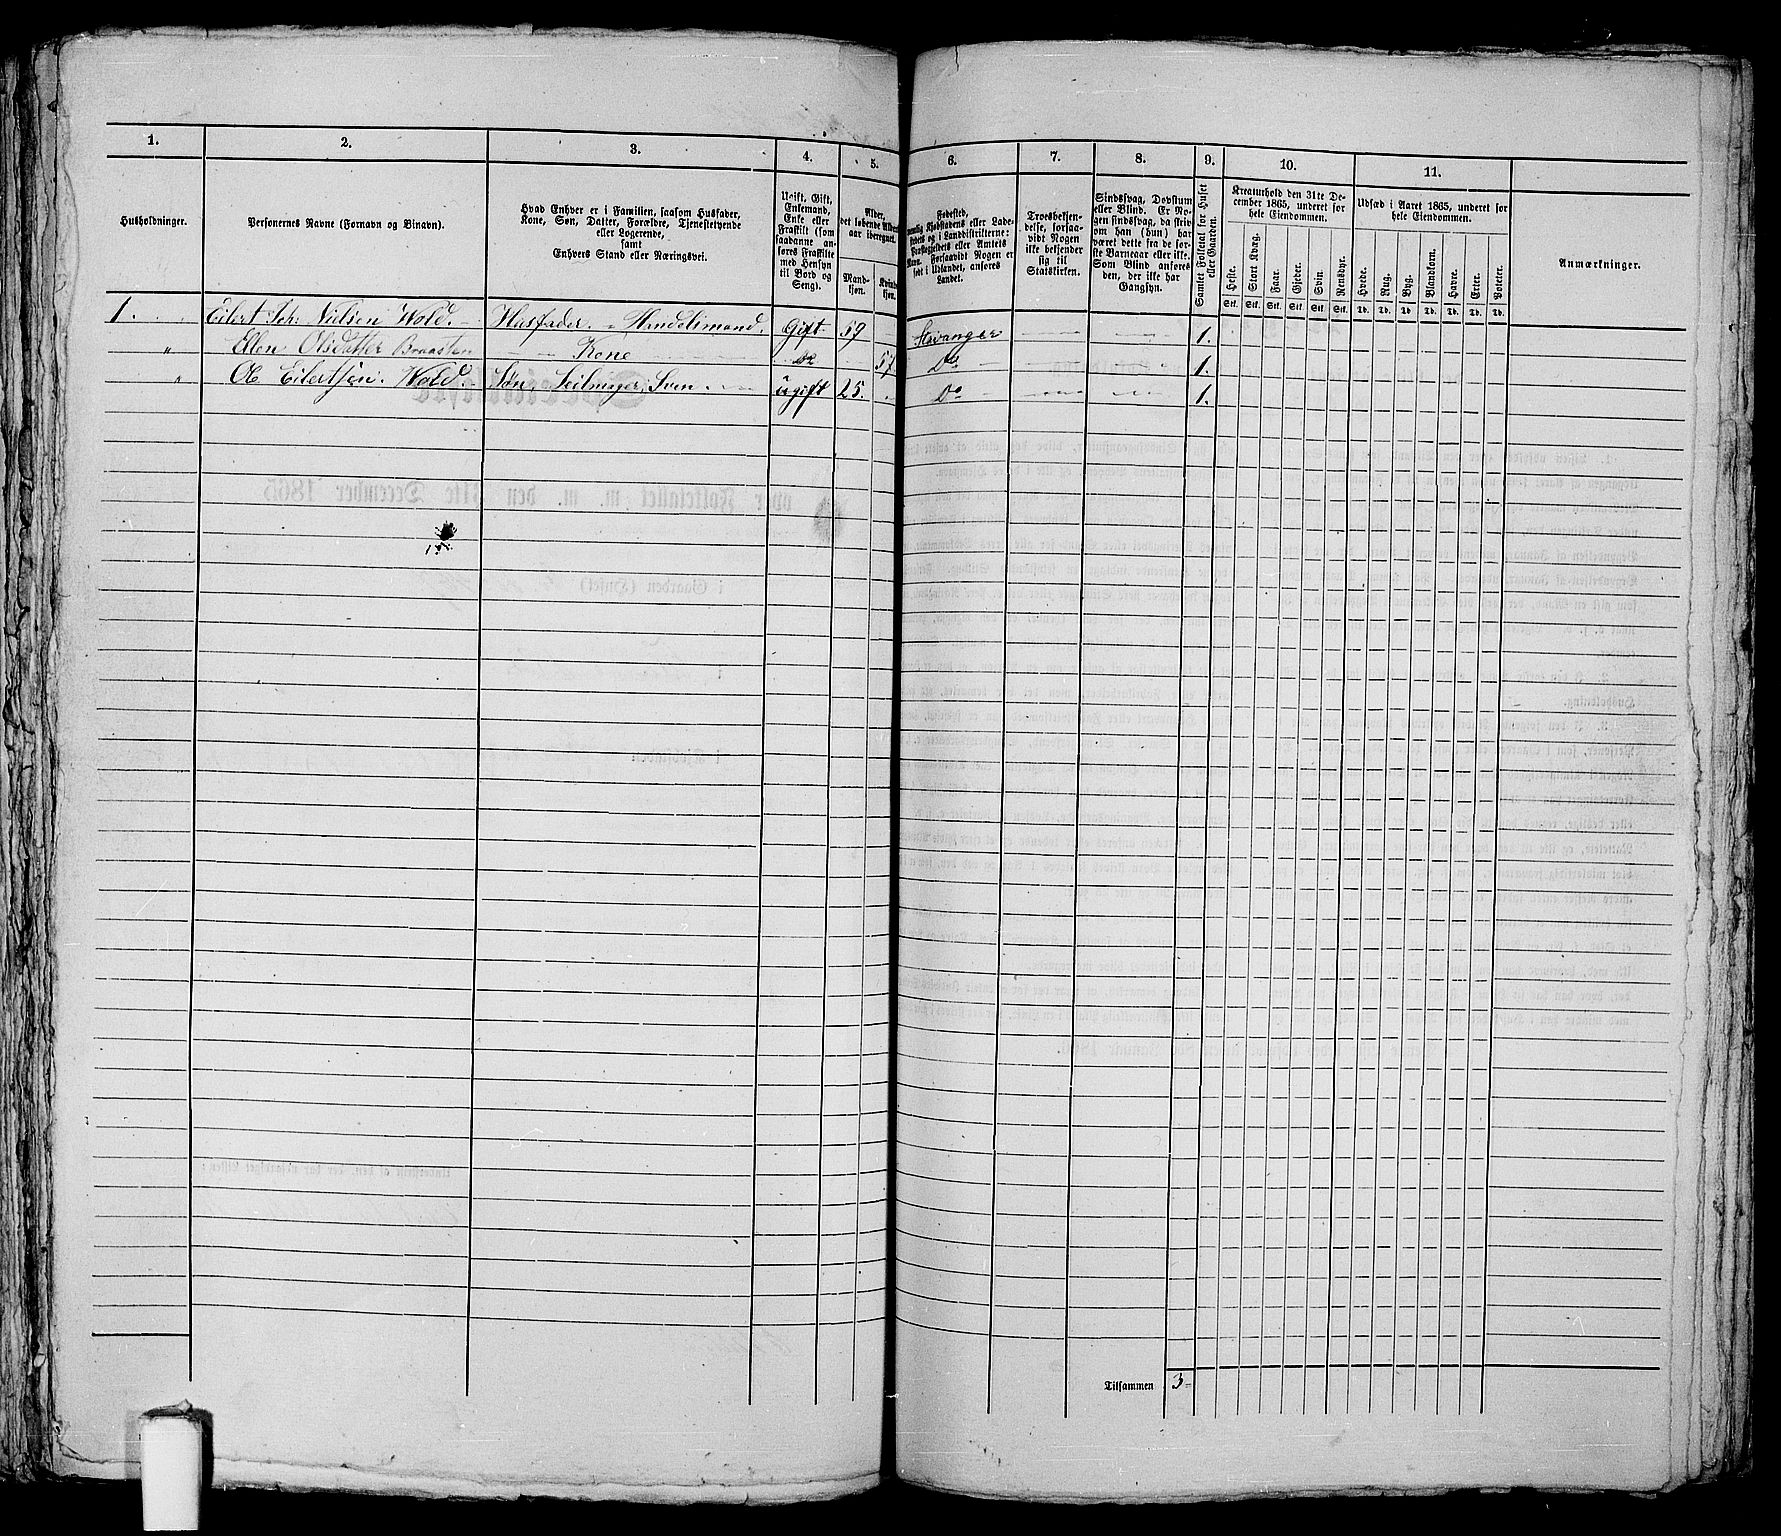 1. 2. 3. 4. 5. 6. 7. 8. 9. 10. 11.
Husholdninger.
Personernes Navne (Fornavn og Binavn).
Hvad Enhver er i Familien, saasom Husfader,
Kone, Søn, Datter, Forældre, Tjenestetyende
eller Logerende,
samt
Enhvers Stand eller Næringsvei.
Ugift, Gift,
Enkemand,
Enke eller
Fraskilt (som
saadanne an-
føres Fraskilte
med Hensyn
til Bord og
Seng).
Alder,
det løbende Alders-
aar iberegnet.
Mand-
kjøn.
Kvinde-
kjøn.
Fødested,
nemlig Kjøbstadens eller Lade-
stedets og i Landdistrikterne:
Præstegjeldets eller Amtets
Navn. Forsaavidt Nogen er
født i Udlandet, anføres
Landet.
Troesbekjen-
delse, forsaa-
vidt Nogen
ikke bekjender
sig til
Statskirken.
Sindssvag, Døvstum
eller Blind. Er No-
gen sindssvag, da skriv
om han (hun) har
været dette fra de før-
ste Barneaar eller ikke.
Som Blind anføres
den, der ikke har
Gangsyn.
Samlet Folketal for Huset
eller Gaarden.
Kreaturhold den 31te De-
cember 1865, underet for
hele Eiendommen.
Heste. Stort Kvæg. Faar. Gjeder. Svin. Rensdyr.
Stk. Stk. Stk. Stk. Stk. Stk.
Udsæd i Aaret 1865, underet for
hele Eiendommen.
Hvede. Rug. Byg. Blandkorn. Havre. Erter. Poteter.
Td. Td. Td. Td. Td. Td. Td.
Anmærkninger.
1. Eilert Joh: Nielsen Wold. Husfader. Handelsmand. Gift 59 Stavanger 1.
" Ellen Olsdatter Braasten Kone do 57 Do 1.
" Ole Eilertsen Wold. Søn, Seilmager Sven. ugift 25. Do 1.
Tilsammen 3